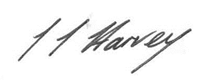 J J Harvey